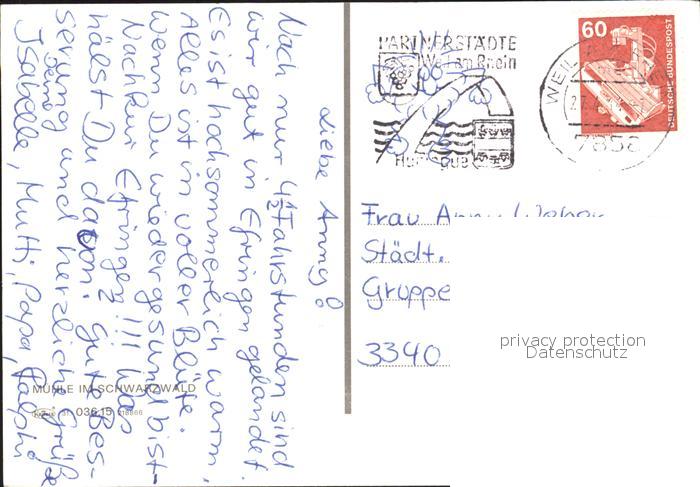 Liebe Anny!
Nach nur 4 1/2 Fahrstunden sind
wir gut in Efringen gelandet.
Es ist hochsommerlich warm,
Alles ist in voller Blüte.
Wenn Du wieder gesund bist -
Nachkur Efringen!!! Was
hälst Du davon? Gute Bes-
serung und herzliche Grüße
Deine
Isabelle, Mutti, Papa, Ralph
MÜHLE IM SCHWARZWALD
03615
PARTNERSTÄDTE
Weil am Rhein
Huningue
WEIL
7858
60
DEUTSCHE BUNDESPOST
Frau Anny Weber
Städt.
Gruppe
3340
privacy protection
Datenschutz